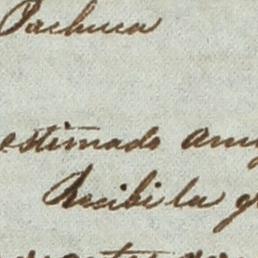 Pachuca
estimado ami
Recibi la g